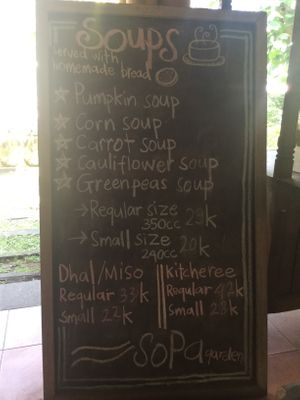 Soups
served with
homemade bread
Pumpkin soup
Corn soup
Carrot soup
Cauliflower soup
Greenpeas soup
→ Regular size 29k
350cc
→ Small size 20k
240cc
Dhal/Miso
Regular 33k
Small 22k
Kitcheree
Regular 42k
Small 28k
SOPA garden